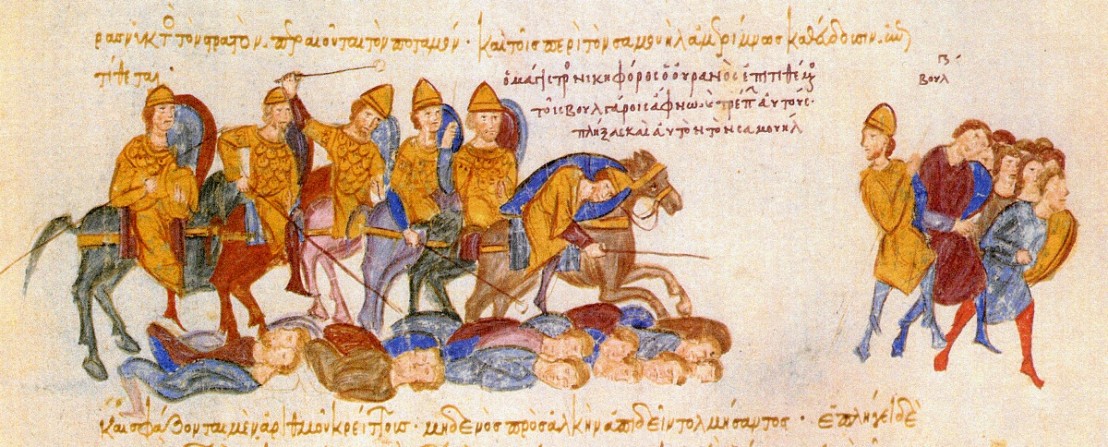 ρας νυκτ τὸν στρατὸν. περαιοῦται τὸν ποταμόν· καὶ τοῖς περὶ τὸν σαμουὴλ ἀμερίμνως καθεύδουσιν. ἐπι
τίθεται·
ὁ μάγιστρο νικηφόρος ὁ οὐρανὸς ἐπιτιθέμ
τοῖς βουλγάροις ἄφνω τρέπ αὐτούς·
πλήξας καὶ αὐτὸν τὸν σαμουήλ
βουλγ
καὶ σφάζονται μὲν ἀριθμοῦ κρείττους· μηδενὸς πρὸς ἀλκὴν ἀπιδεῖν τολμήσαντος· ἐπλήγει δὲ